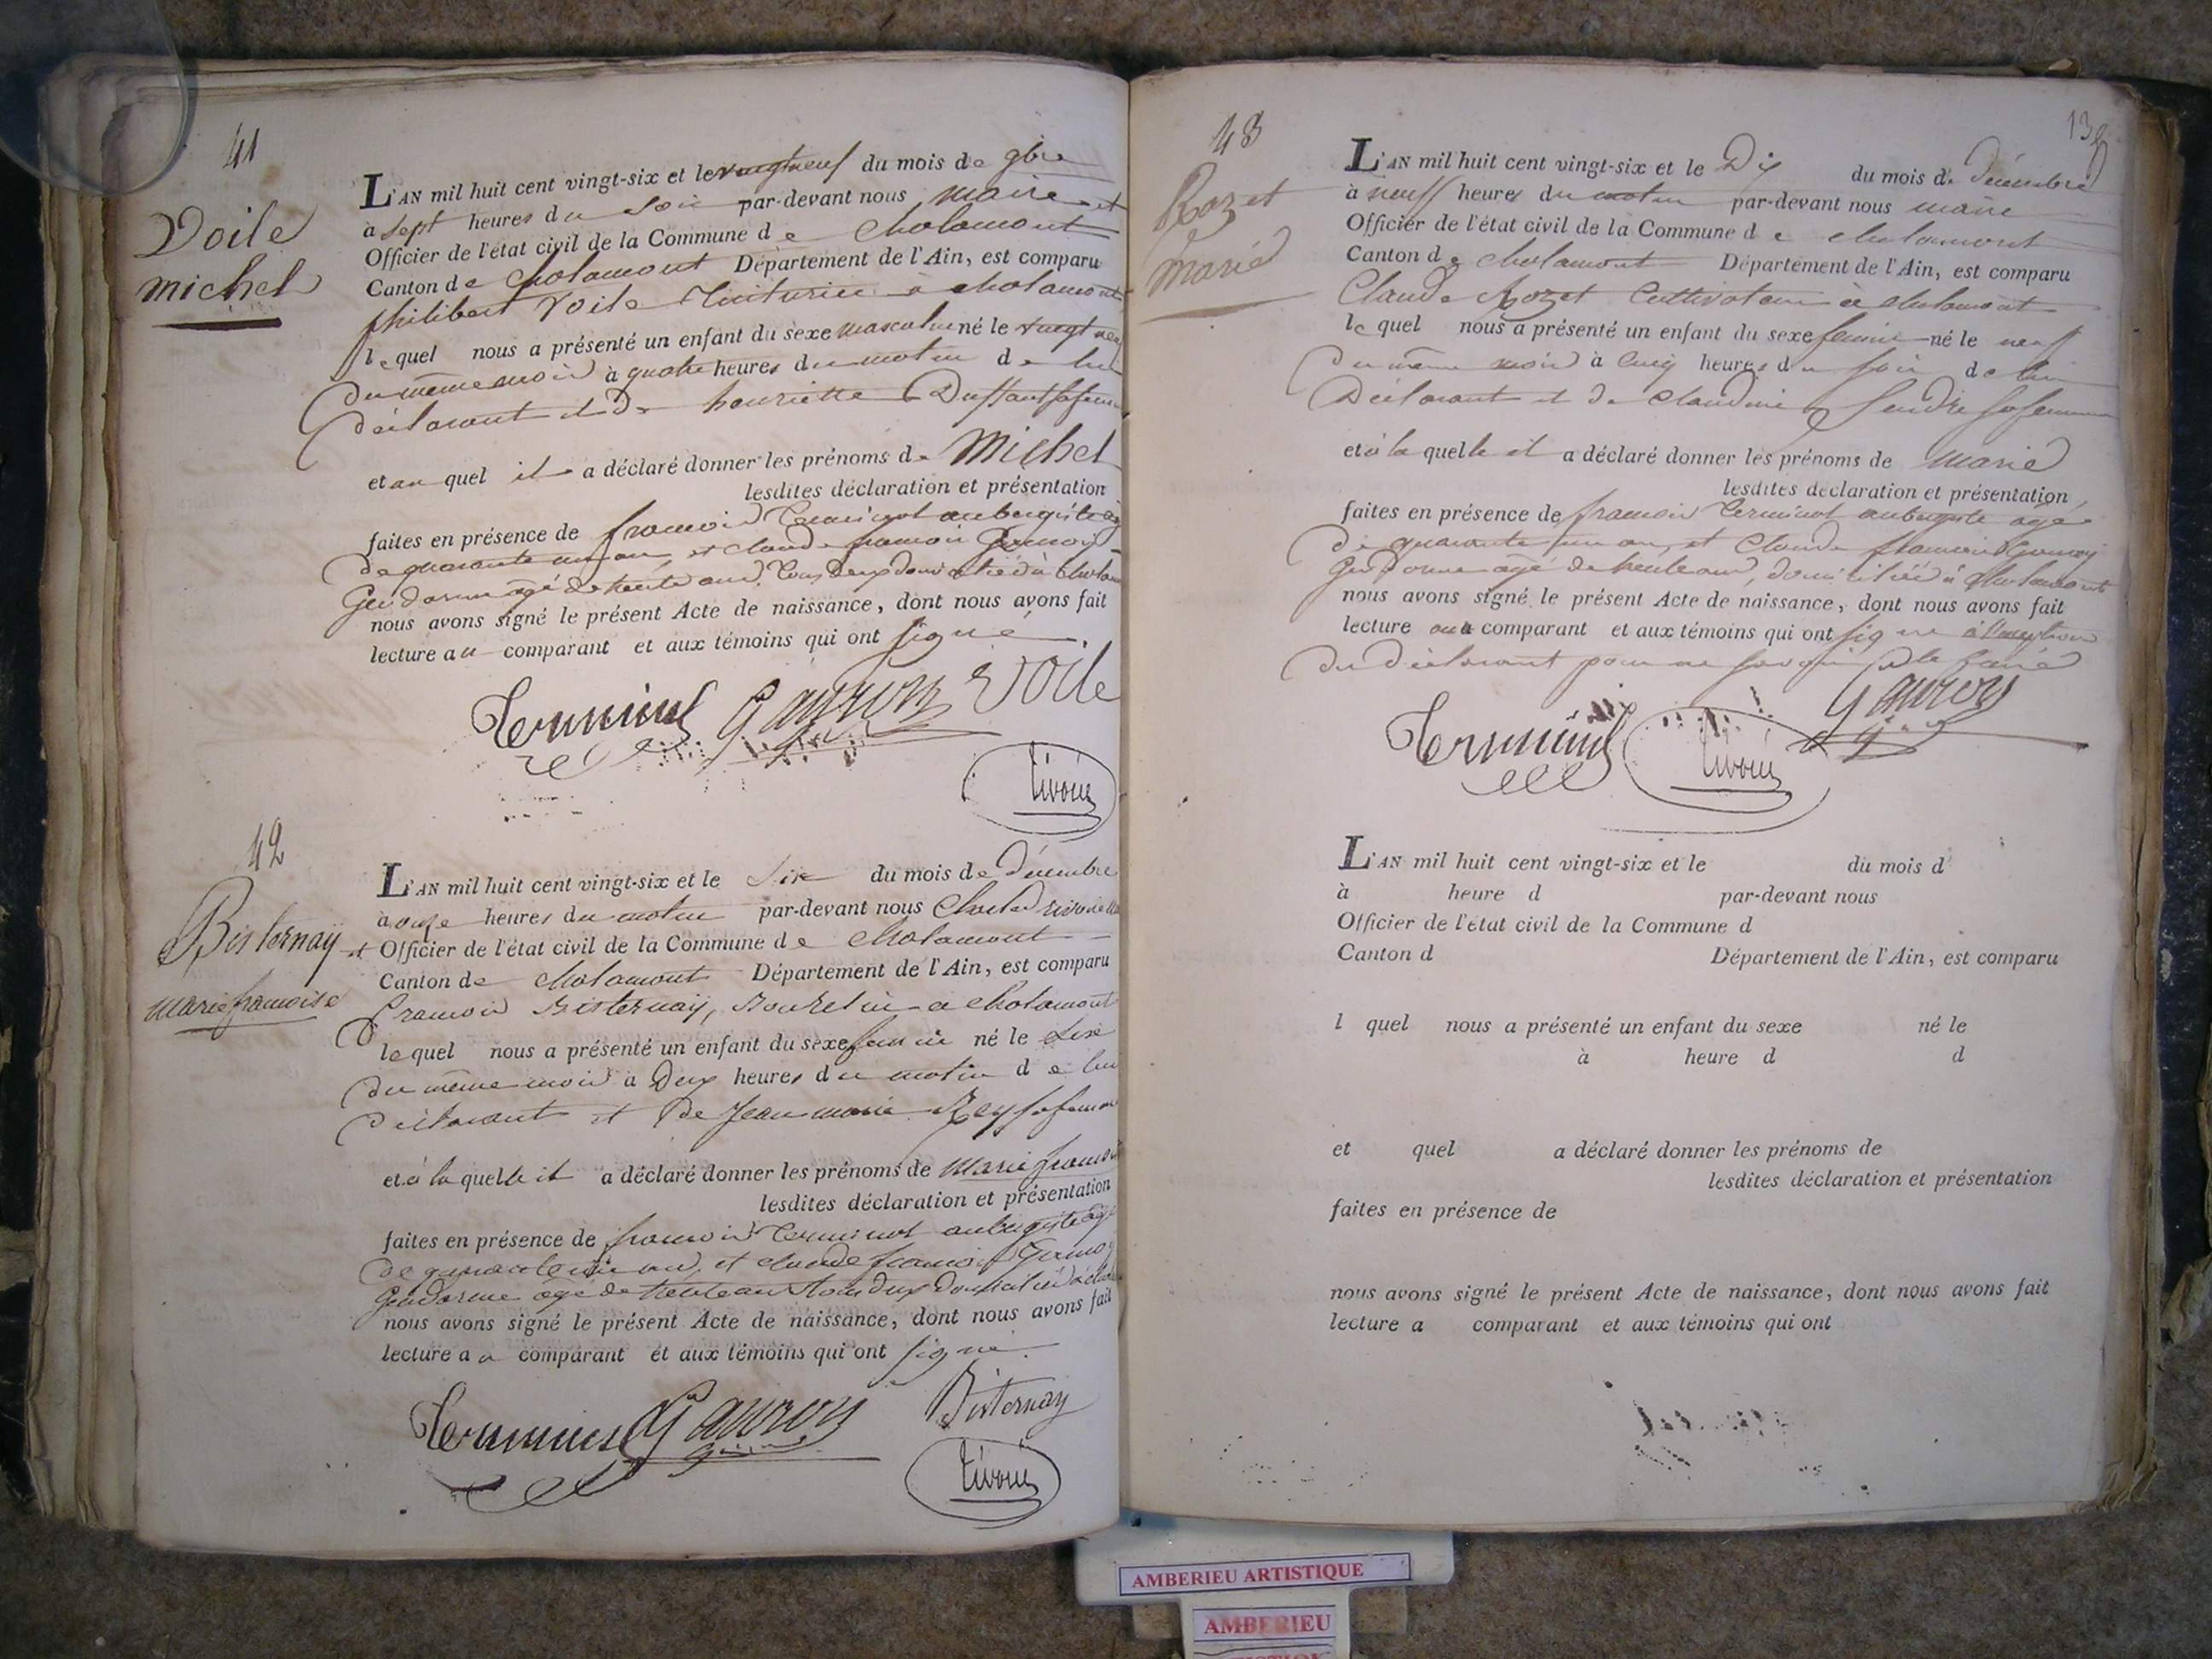 41
Voile
michel
L'AN mil huit cent vingt-six et le vingt neuf du mois de 9bre
à sept heures du soir par-devant nous maire et
Officier de l'état civil de la Commune de Chalamont
Canton de Chalamont Département de l'Ain, est comparu
philibert Voile à chalamont
lequel nous a présenté un enfant du sexe masculin né le vingt neuf
du même mois à quatre heures du matin de lui
déclarant et de henriette sa femme
et au quel il a déclaré donner les prénoms de Michel
lesdites déclaration et présentation
faites en présence de francois Terminet aubergiste
de quarante un an, et claude francois
Gendarme agé de trente ans tous deux domiciliés à
nous avons signé le présent Acte de naissance, dont nous avons fait
lecture au comparant et aux témoins qui ont signé
Voile
42
Bisternay
marie francoise
L'AN mil huit cent vingt-six et le six du mois de décembre
à onze heures du matin par-devant nous
et Officier de l'état civil de la Commune de chalamont
Canton de chalamont Département de l'Ain, est comparu
francois Bisternay, à chalamont
lequel nous a présenté un enfant du sexe feminin né le six
du même mois à deux heures du matin de lui
déclarant et de Jeanmarie Rey sa femme
et à la quelle il a déclaré donner les prénoms de marie
lesdites déclaration et présentation
faites en présence de francois Terminet aubergiste
de quarante un an, et claude francois
Gendarme agé de trente ans tous deux domiciliés à
nous avons signé le présent Acte de naissance, dont nous avons fait
lecture au comparant et aux témoins qui ont signé.
Bisternay
43
Rozet
marie
L'AN mil huit cent vingt-six et le Dix du mois de décembre
à neuf heures du matin par-devant nous maire
Officier de l'état civil de la Commune de chalamont
Canton de chalamont Département de l'Ain, est comparu
Claude Rozet Cultivateur à chalamont
le quel nous a présenté un enfant du sexe feminin né le neuf
du même mois à cinq heures du soir de lui
déclarant et de claudine sa femme
et à la quelle il a déclaré donner les prénoms de marie
lesdites déclaration et présentation
faites en présence de francois Terminet aubergiste agé
de quarante un an, et Claude francois
Gendarme agé de trente ans, domiciliés à Chalamont
nous avons signé le présent Acte de naissance, dont nous avons fait
lecture au comparant et aux témoins qui ont signé à l'exception
du déclarant pour ne savoir le faire
L'AN mil huit cent vingt-six et le du mois d
à heure d par-devant nous
Officier de l'état civil de la Commune d
Canton d Département de l'Ain, est comparu
l quel nous a présenté un enfant du sexe né le
à heure d d
et quel a déclaré donner les prénoms de
lesdites déclaration et présentation
faites en présence de
nous avons signé le présent Acte de naissance, dont nous avons fait
lecture a comparant et aux témoins qui ont
AMBERIEU ARTISTIQUE
AMBERIEU